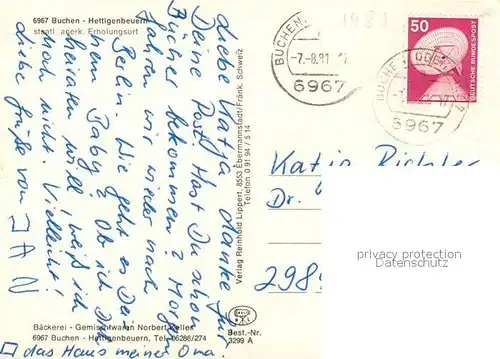 6967 Buchen - Hettigenbeuern
staatl. anerk. Erholungsort
Liebe Katja! Danke für
Deine Post. Hast Du schon
Bücher bekommen? Morgen
fahren wir wieder nach
Berlin. Wie geht es Dei-
nem Baby? Ob ich Dich
heiraten will weiß ich
noch nicht. Vielleicht!
Liebe Grüße von JAN
Bäckerei - Gemischtwaren Norbert
6967 Buchen - Hettigenbeuern, Tel. 06286/274
das Haus meiner Oma.
Verlag Reinhold Lippert, 8553 Ebermannstadt/Fränk. Schweiz
Telefon 0 91 94 / 5 14
Best.-Nr.
3299 A
1981
BUCHEN
-7.-8.81
6967
50
DEUTSCHE BUNDESPOST
BUCHEN
6967
Katja Richter
Dr.
298
privacy protection
Datenschutz